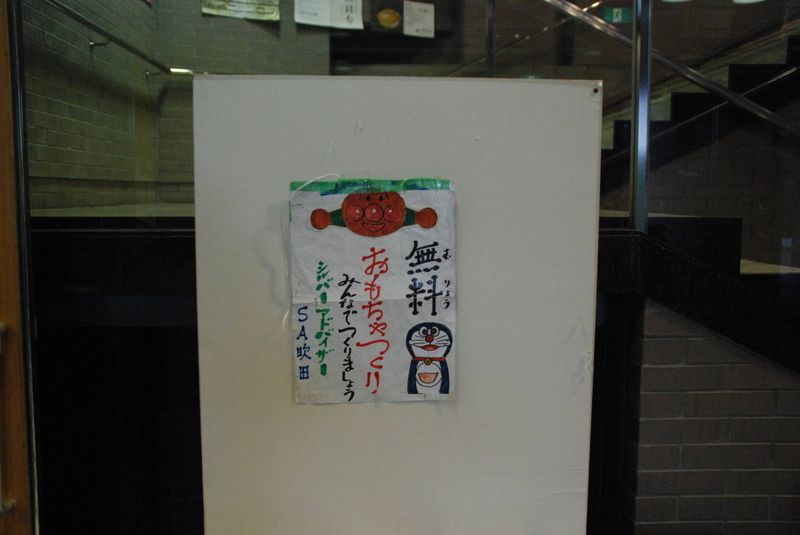 無料
むりょう
おもちゃつくり
みんなでつくりましょう
シルバーアドバイザー
SA吹田